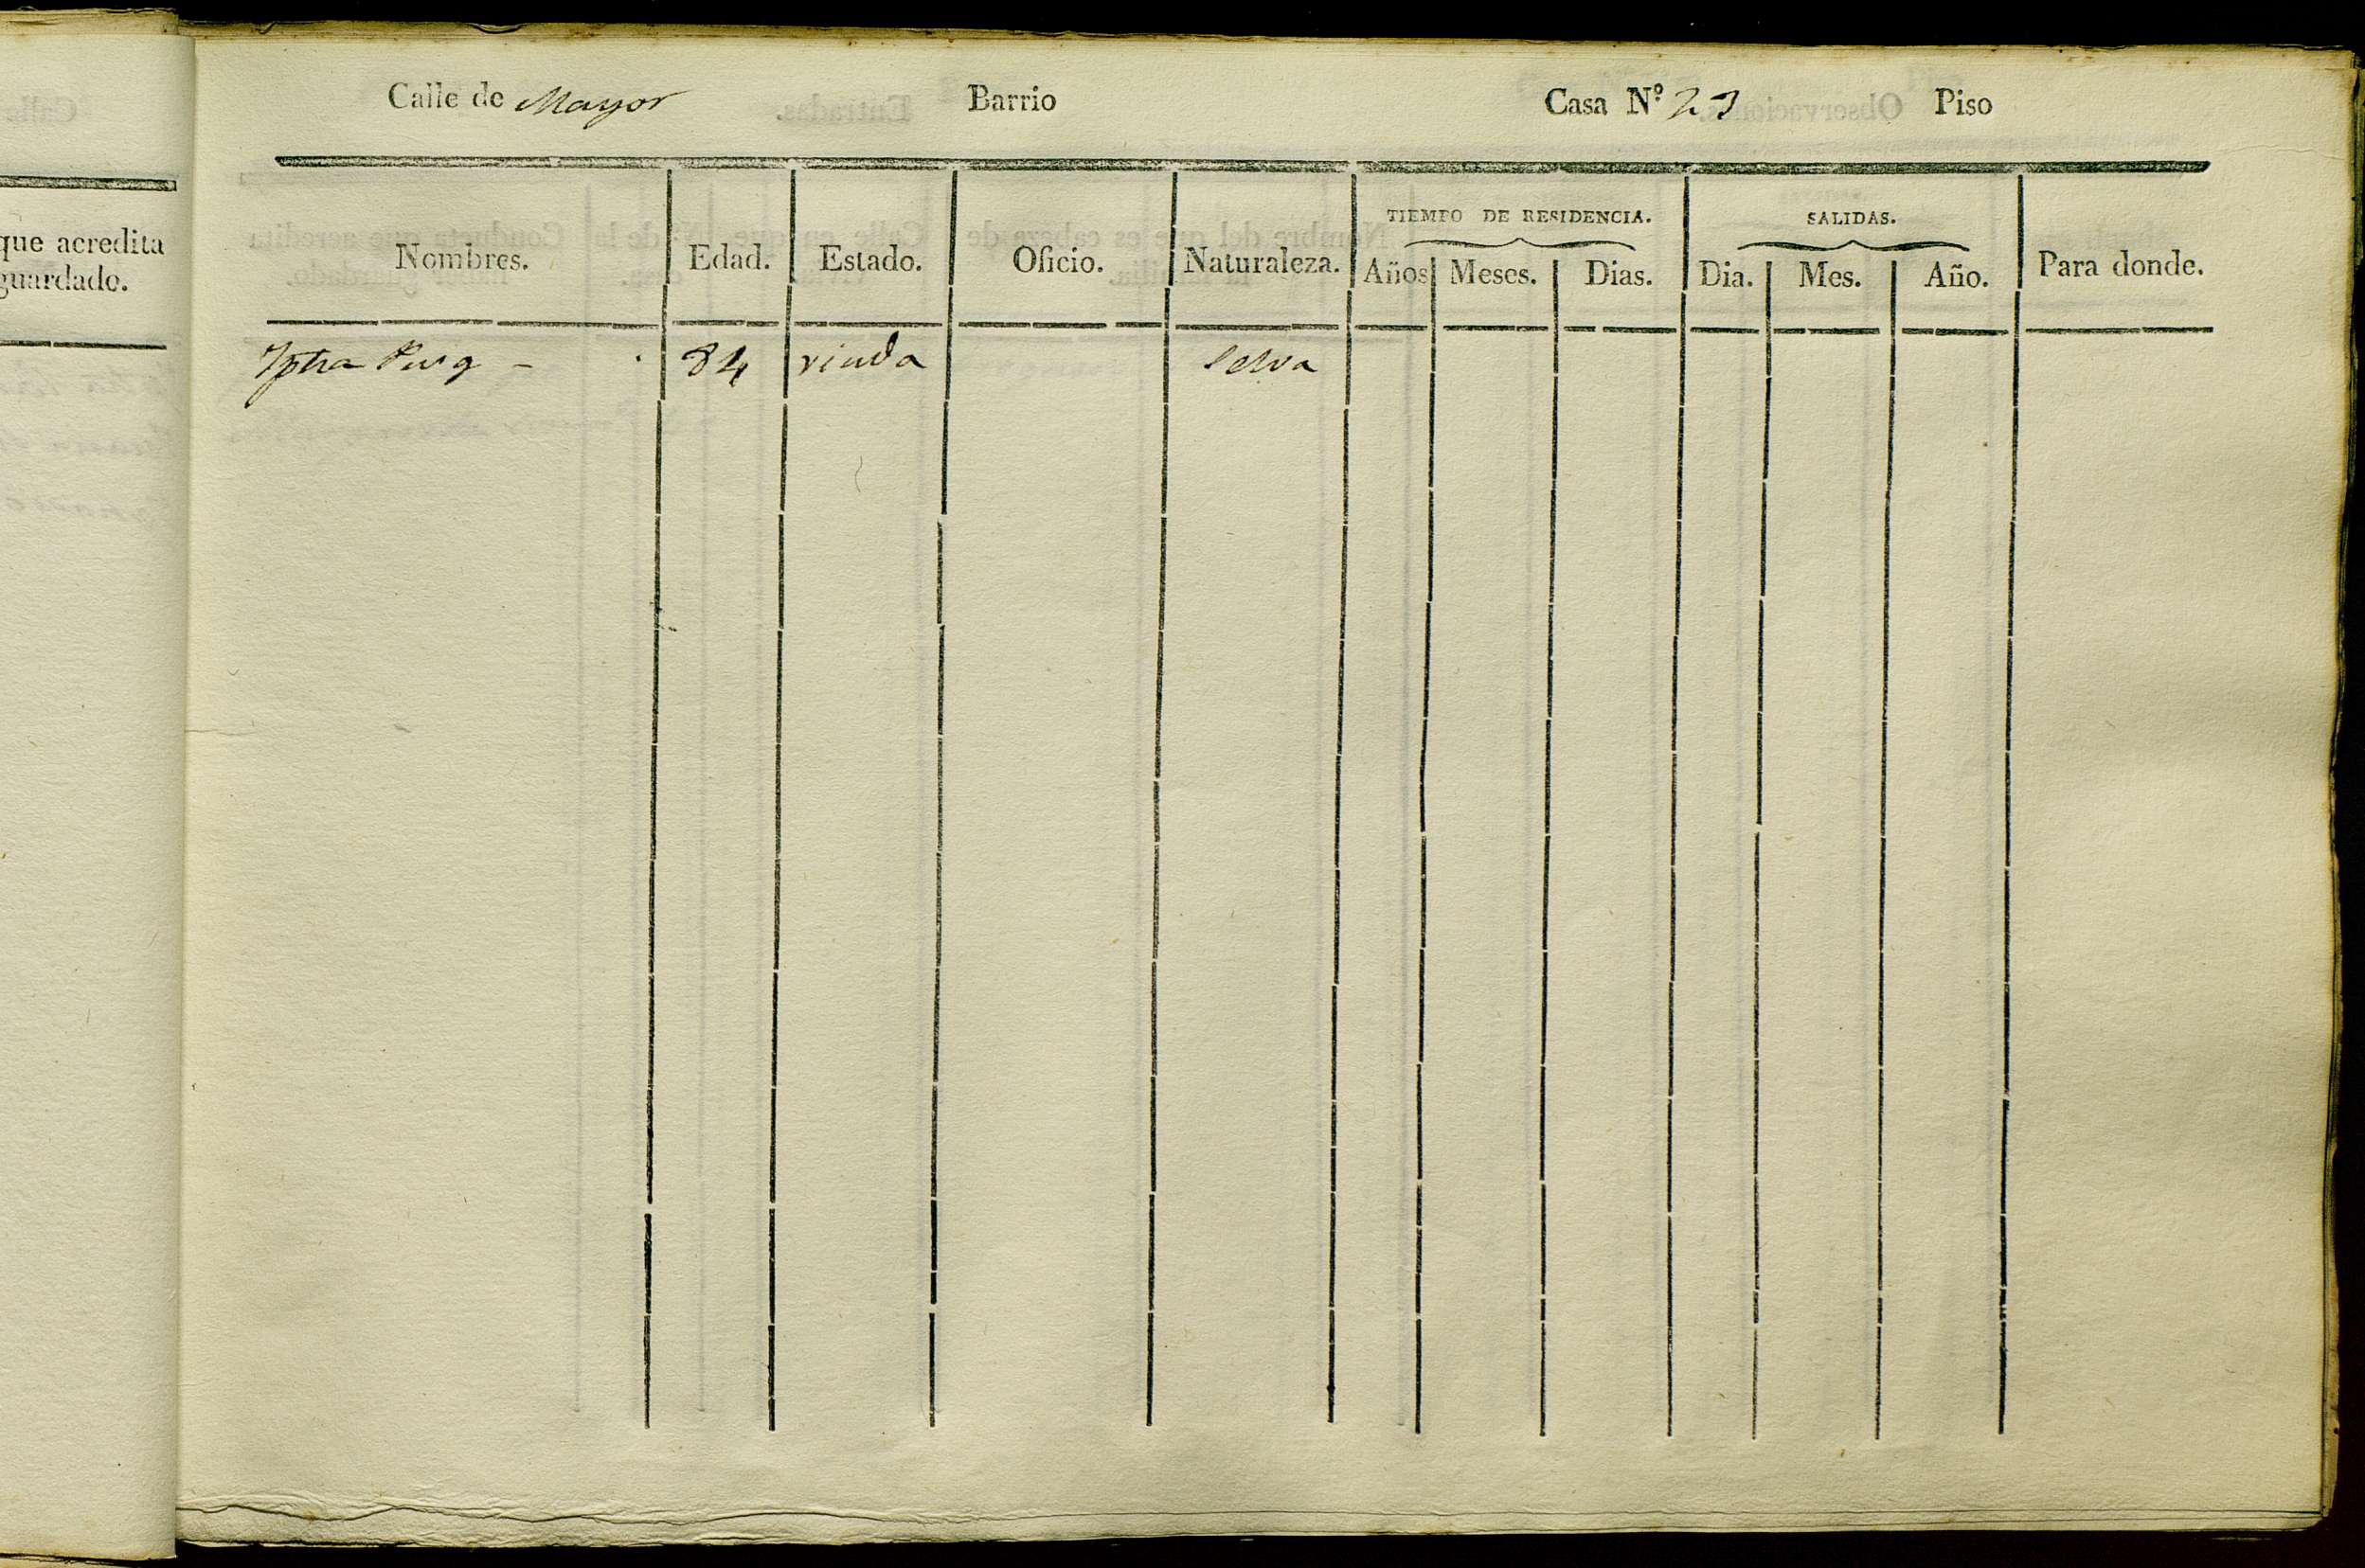 que acredita
guardado.
Calle de Mayor Barrio Casa Nº 23 Piso
Nombres. Edad. Estado. Oficio. Naturaleza. TIEMPO DE RESIDENCIA. Años Meses. Dias. SALIDAS. Dia. Mes. Año. Para donde.
Puig - 84 viuda Selva